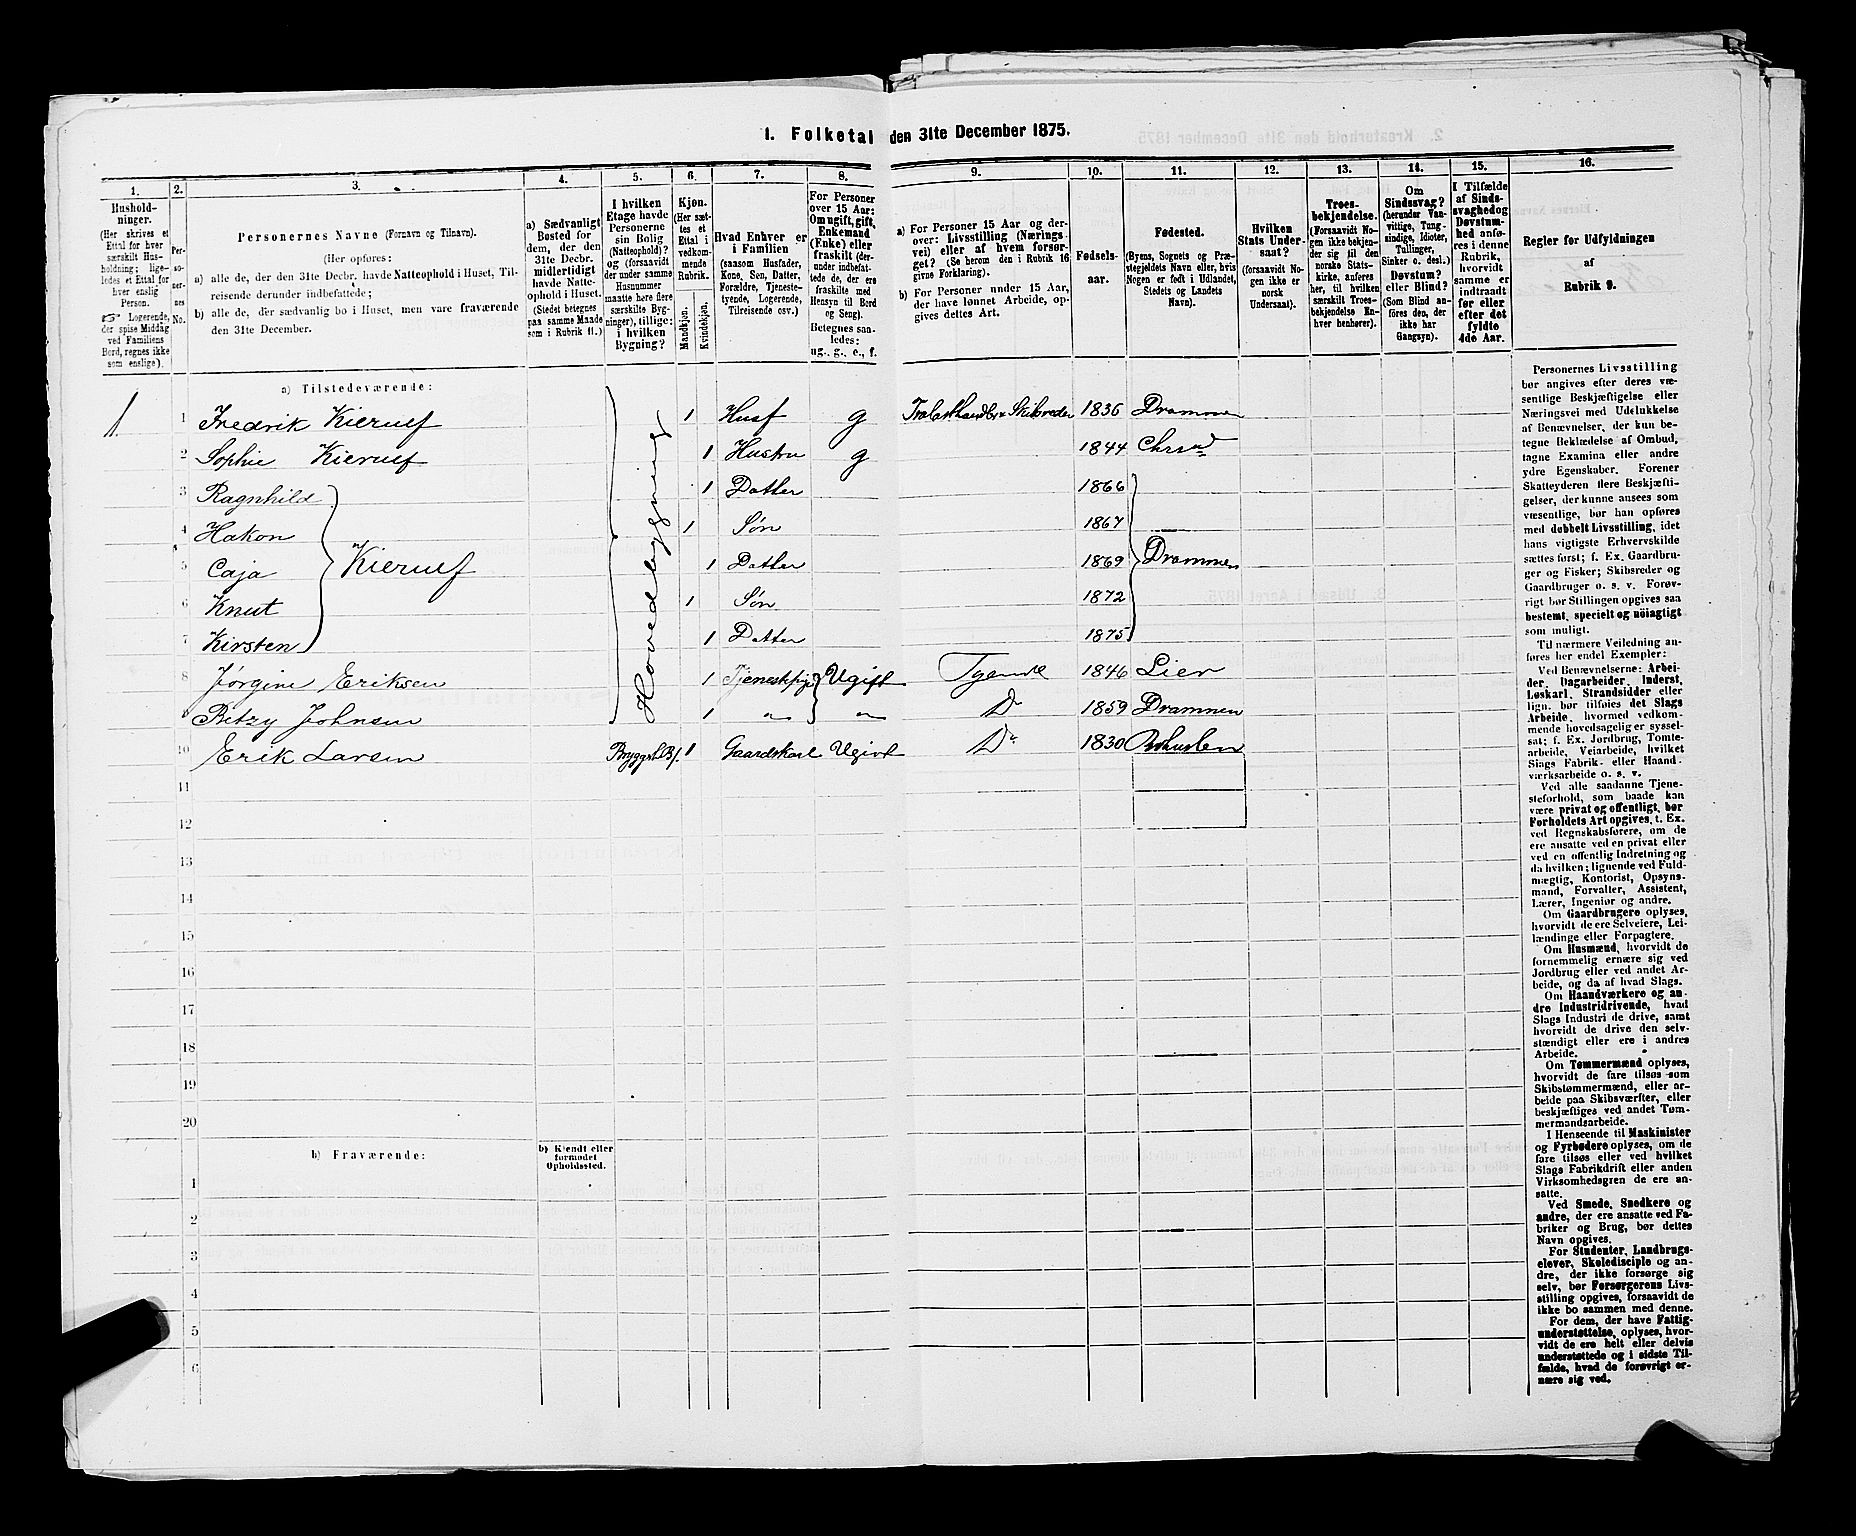 1. Folketal den 31te December 1875.
1. 2. 3. 4. 5. 6. 7. 8. 9. 10. 11. 12. 13. 14. 15. 16.
Hushold-
ninger.
(Her skrives et
Ettal for hver
særskilt Hus-
holdning; lige-
ledes et Ettal for
hver enslig
Person.
☞ Logerende,
der spise Middag
ved Familiens
Bord, regnes ikke
som enslige).
Per-
so-
ner-
nes
No.
Personernes Navne (Fornavn og Tilnavn).
(Her opføres:
a) alle de, der den 31te Decbr. havde Natteophold i Huset, Til-
reisende derunder indbefattede;
b) alle de, der sædvanlig bo i Huset, men vare fraværende
den 31te December.
a) Sædvanligt
Bosted for
dem, der den
31te Decbr.
midlertidigt
havde Natte-
ophold i Huset.
(Stedet betegnes
paa samme Maade
som i Rubrik 11.)
I hvilken
Etage havde
Personerne
sin Bolig
(Natteophold)?
og (forsaavidt
der under samme
Husnummer
maatte høre flere
særskilte Byg-
ninger), tillige:
i hvilken
Bygning?
Kjøn.
(Her sæt-
tes et
Ettal i
vedkom-
mende
Rubrik.
Mandkjøn.
Kvindekjøn.
Hvad Enhver er
i Familien
(saasom Husfader,
Kone, Søn, Datter,
Forældre, Tjeneste-
tyende, Logerende,
Tilreisende osv.)
For Personer
over 15 Aar:
Om ugift, gift,
Enkemand
(Enke) eller
fraskilt (der-
under indbefat-
tede de, der ere
fraskilte med
Hensyn til Bord
og Seng).
Betegnes saa-
ledes:
ug., g., e., f.
a) For Personer 15 Aar og der-
over: Livsstilling (Nærings-
vei) eller af hvem forsør-
get? (Se herom den i Rubrik 16
givne Forklaring).
b) For Personer under 15 Aar,
der have lønnet Arbeide, op-
gives dettes Art.
Fødsels-
aar.
Fødested.
(Byens, Sognets og Præ-
stegjeldets Navn eller, hvis
Nogen er født i Udlandet,
Stedets og Landets
Navn).
Hvilken
Stats Under-
saat?
(forsaavidt No-
gen ikke er
norsk
Undersaat).
Troes-
bekjendelse.
(Forsaavidt No-
gen ikke bekjen-
der sig til den
norske Stats-
kirke, anføres
her, til hvilken
særskilt Troes-
bekjendelse En-
hver henhører).
Om
Sindssvag?
(herunder Van-
vittige, Tung-
sindige, Idioter,
Tullinger,
Sinker o. desl.)
Døvstum?
eller Blind?
(Som Blind an-
føres den, der
ikke har
Gangsyn).
I Tilfælde
af Sinds-
svaghed og
Døvstum-
hed anfø-
res i denne
Rubrik,
hvorvidt
samme er
indtraadt
før eller
efter det
fyldte
4de Aar.
Regler for Udfyldningen
af
Rubrik 9.
a) Tilstedeværende:
1 1 Fredrik Kierulf 1 Husf g Trælasthandler Skibsreder 1836 Drammen
2 Sophie Kierulf 1 Hustru g 1844 Chrsand
3 Ragnhild 1 Datter 1866
4 Hakon 1 Søn 1867
5 Caja Kierulf 1 Datter 1869 Drammen
6 Knut 1 Søn 1872
7 Kirsten 1 Datter 1875
Hovedbygning
8 Jørgine Eriksen 1 Tjenestpige Ugift Tyende 1846 Lier
9 Betzy Johnsen 1 " " Do 1859 Drammen
10 Erik Larsen 1 Gaardskarl Ugivt Do 1830 Bohuslen
11
12
13
14
15
16
17
18
19
20
b) Fraværende:
b) Kjendt eller
formodet
Opholdssted.
1
2
3
4
5
6
Personernes Livsstilling
bør angives efter deres væ-
sentlige Beskjæftigelse eller
Næringsvei med Udelukkelse
af Benævnelser, der kun be-
tegne Beklædelse af Ombud,
tagne Examina eller andre
ydre Egenskaber. Forener
Skatteyderen flere Beskjæfti-
gelser, der kunne ansees som
væsentlige, bør han opføres
med dobbelt Livsstilling, idet
hans vigtigste Erhvervskilde
sættes først; f. Ex. Gaardbru-
ger og Fisker; Skibsreder og
Gaardbruger o. s. v. Forøv-
rigt bør Stillingen opgives saa
bestemt, specielt og nøiagtigt
som muligt.
Til nærmere Veiledning an-
føres her endel Exempler:
Ved Benævnelserne: Arbei-
der, Dagarbeider, Inderst,
Løskarl, Strandsidder eller
lign. bør tilføies det Slags
Arbeide, hvormed vedkom-
mende hovedsagelig er syssel-
sat; f. Ex. Jordbrug, Tomte-
arbeide, Veiarbeide, hvilket
Slags Fabrik- eller Haand-
værksarbeide o. s. v.
Ved alle saadanne Tjene-
steforhold, som baade kan
være privat og offentligt, bør
Forholdets Art opgives, t. Ex.
ved Regnskabsførere, om de
ere ansatte ved en privat eller
ved en offentlig Indretning og
da hvilken; lignende ved Fuld-
mægtig, Kontorist, Opsyns-
mand, Forvalter, Assistent,
Lærer, Ingeniør og andre.
Om Gaardbrugere oplyses,
hvorvidt de ere Selveiere, Lei-
lændinge eller Forpagtere.
Om Husmænd, hvorvidt de
fornemmelig ernære sig ved
Jordbrug eller ved andet Ar-
beide, og da af hvad Slags.
Om Haandværkere og an-
dre Industridrivende, hvad
Slags Industri de drive, samt
hvorvidt de drive den selv-
stændigt eller ere i andres
Arbeide.
Om Tømmermænd oplyses,
hvorvidt de fare tilsøs som
Skibstømmermænd, eller ar-
beide paa Skibsværfter, eller
beskjæftiges ved andet Tøm-
mermandsarbeide.
I Henseende til Maskinister
og Fyrbødere oplyses, om de
fare tilsøs eller ved hvilket
Slags Fabrikdrift eller anden
Virksomhedsgren de ere an-
satte.
Ved Smede, Snedkere og
andre, der ere ansatte ved Fa-
briker og Brug, bør dettes
Navn opgives.
For Studenter, Landbrugs-
elever, Skoledisciple og an-
dre, der ikke forsørge sig
selv, bør Forsørgerens Livs-
stilling opgives, forsaavidt de
ikke bo sammen med denne.
For dem, der have Fattig-
understøttelse, oplyses, hvor-
vidt de ere helt eller delvis
understøttede og i sidste Til-
fælde, hvad de forøvrigt er-
nære sig ved.